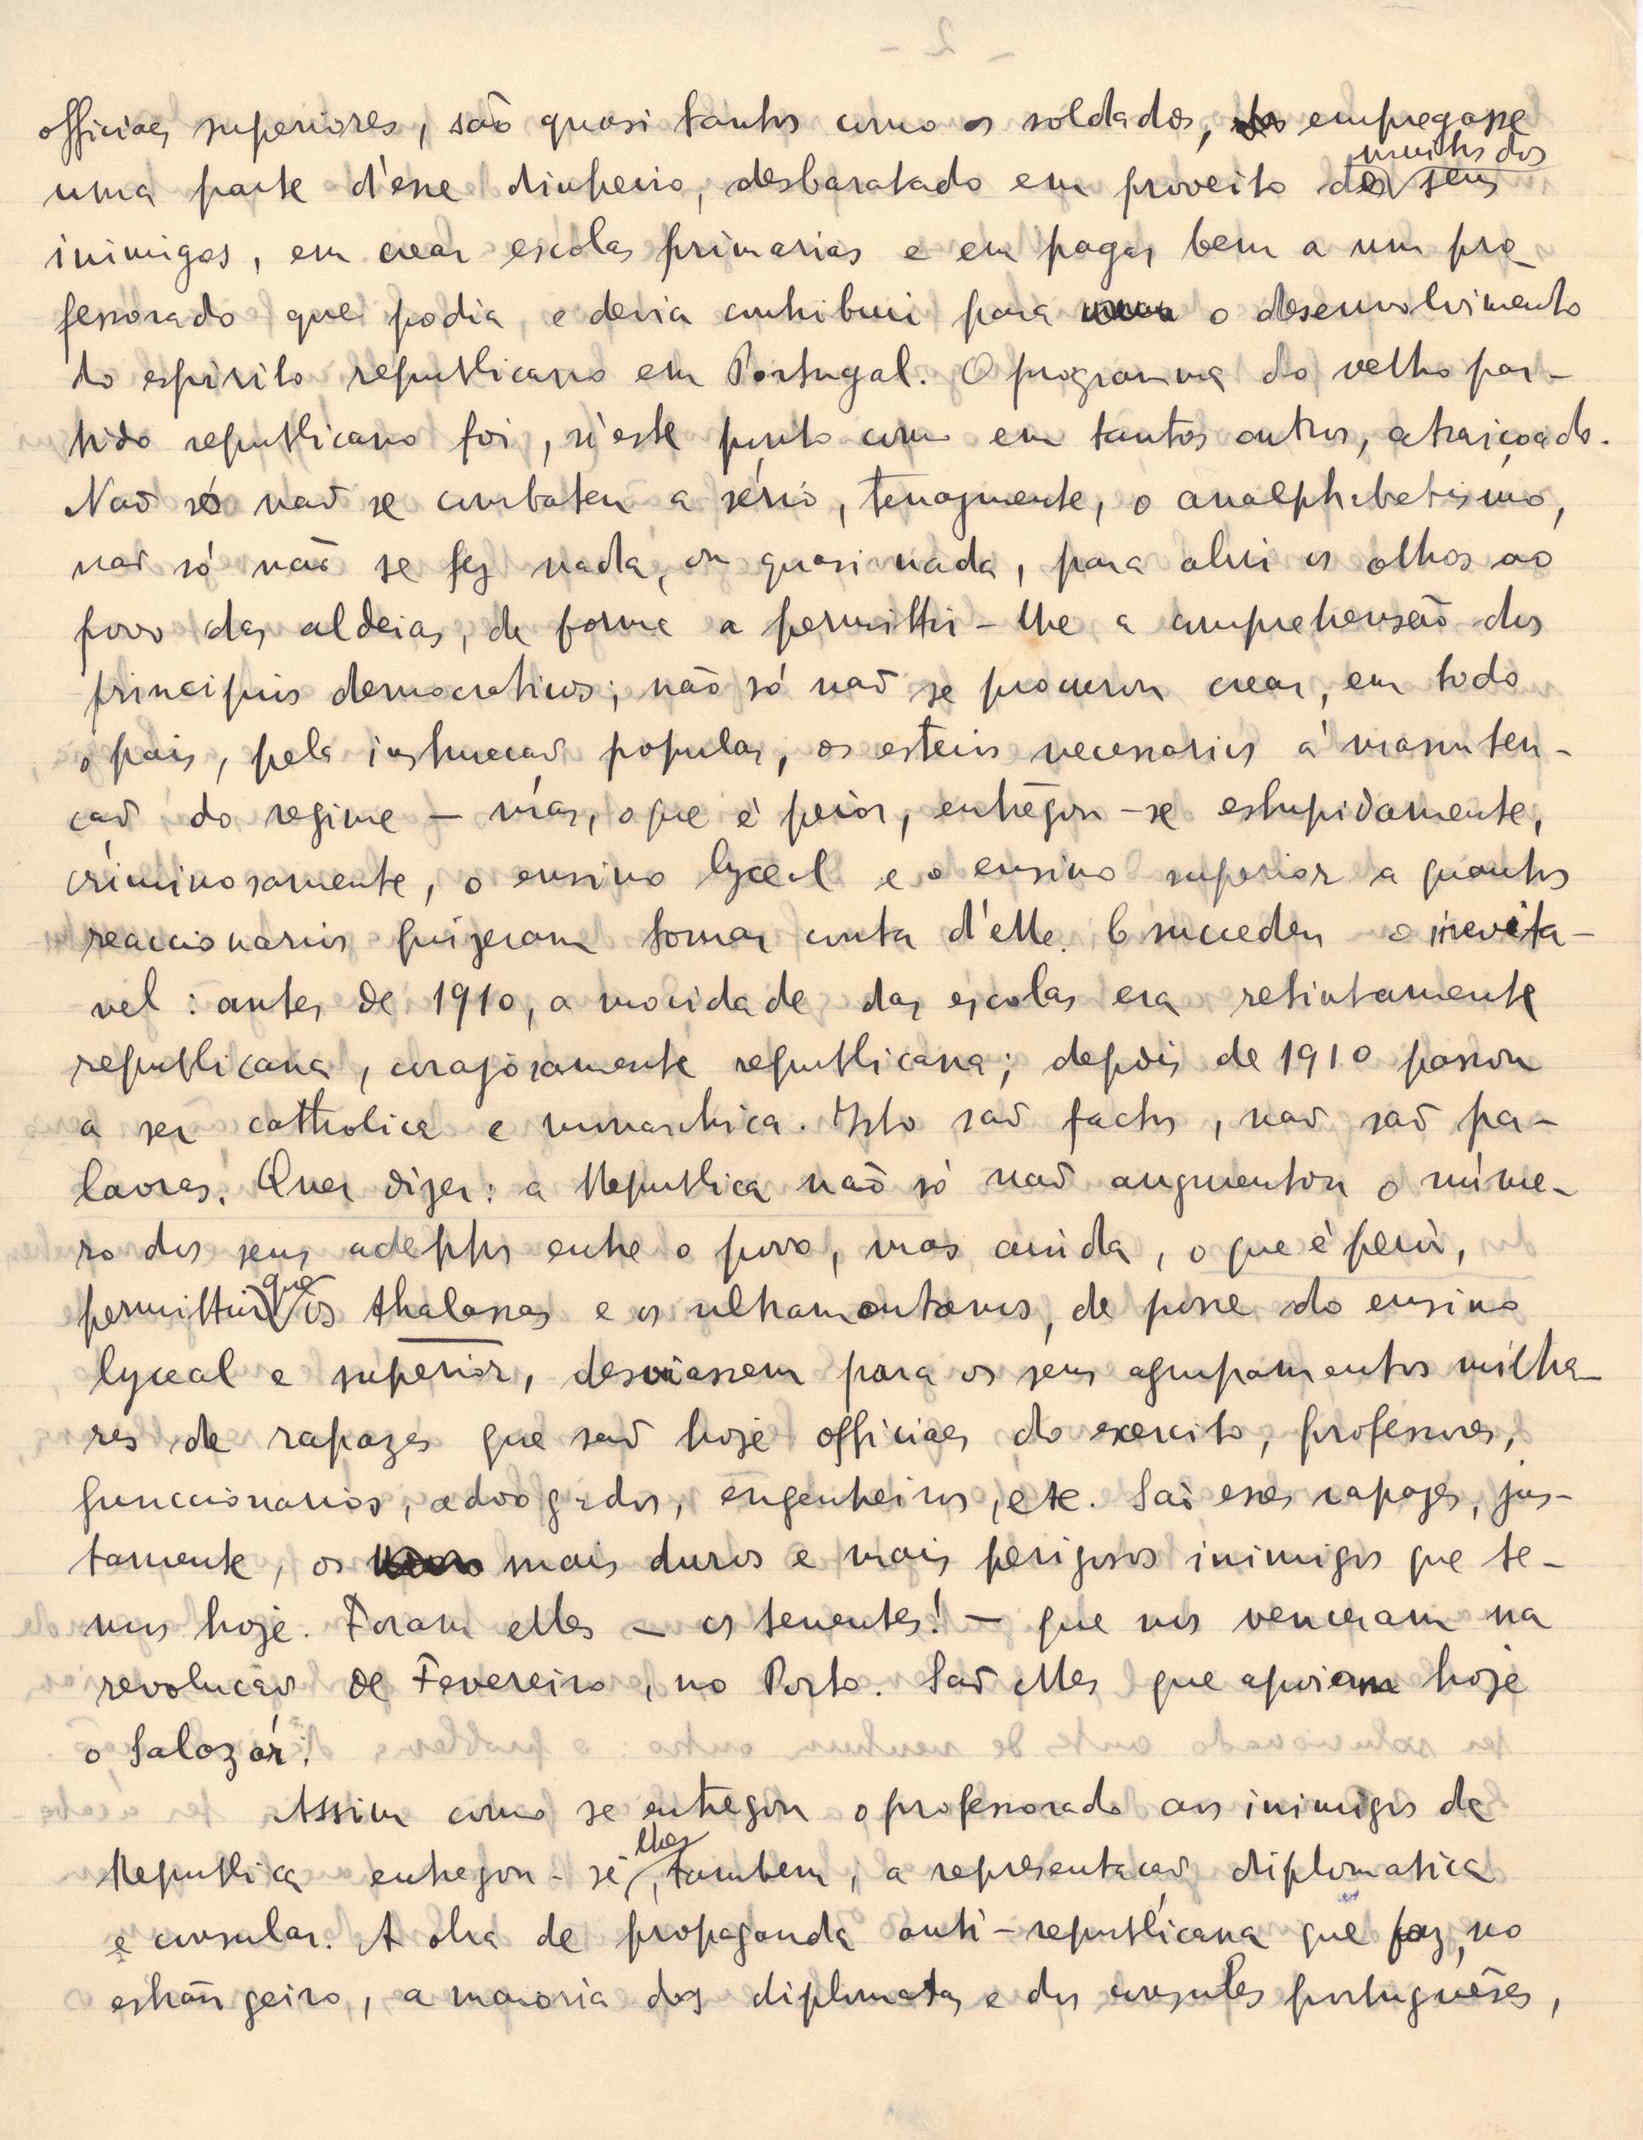 officiaes superiores, são quasi tantos como os soldados, empregasse
uma parte d'esse dinheiro, desbaratado em proveito de muitos dos seus
inimigos, em crear escolas primarias e em pagar bem a um pro-
fessorado que podia e devia contribuir para o desenvolvimento
do espirito republicano em Portugal. O programma do velho par-
tido republicano foi, n'este ponto como em tantos outros, atraiçoado.
Não só não se combateu a sério, tenazmente, o analphabetismo,
não só não se fez nada, ou quasi nada, para abrir os olhos ao
povo das aldeias, de forma a permittir-lhe a comprehensão dos
principios democraticos; não só não se procurou crear, em todo
o pais, pela instrucção popular, os esteios necessarios á manuten-
ção do regime – mas, o que é peior, entregou-se estupidamente,
criminosamente, o ensino lyceal e o ensino superior a quantos
reaccionarios quizeram tomar conta d'elle. E succedeu o inevita-
vel: antes de 1910, a mocidade das escolas era retintamente
republicana, corajosamente republicana; depois de 1910 passou
a ser catholica e monarchica. Isto são factos, não são pa-
lavras. Quer dizer: a Republica não só não augmentou o núme-
ro dos seus adeptos entre o povo, mas ainda, o que é peior,
permittiu que os thalassas e os ultramontanos, de posse do ensino
lyceal e superior, desviassem para os seus agrupamentos milha-
res de rapazes que são hoje officiaes do exercito, professores,
funccionarios, advogados, engenheiros, etc. São esses rapazes, jus-
tamente, os mais duros e mais perigosos inimigos que te-
mos hoje. Foram elles – os tenentes! – que nos venceram na
revolução de Fevereiro, no Porto. São elles que apoiam hoje
o Salazar.
Assim como se entregou o professorado aos inimigos da
Republica entregou-se-lhes, tambem, a representação diplomatica
e consular. A obra de propaganda anti-republicana que faz, no
estrangeiro, a maioria dos diplomatas e dos consules portuguêses,